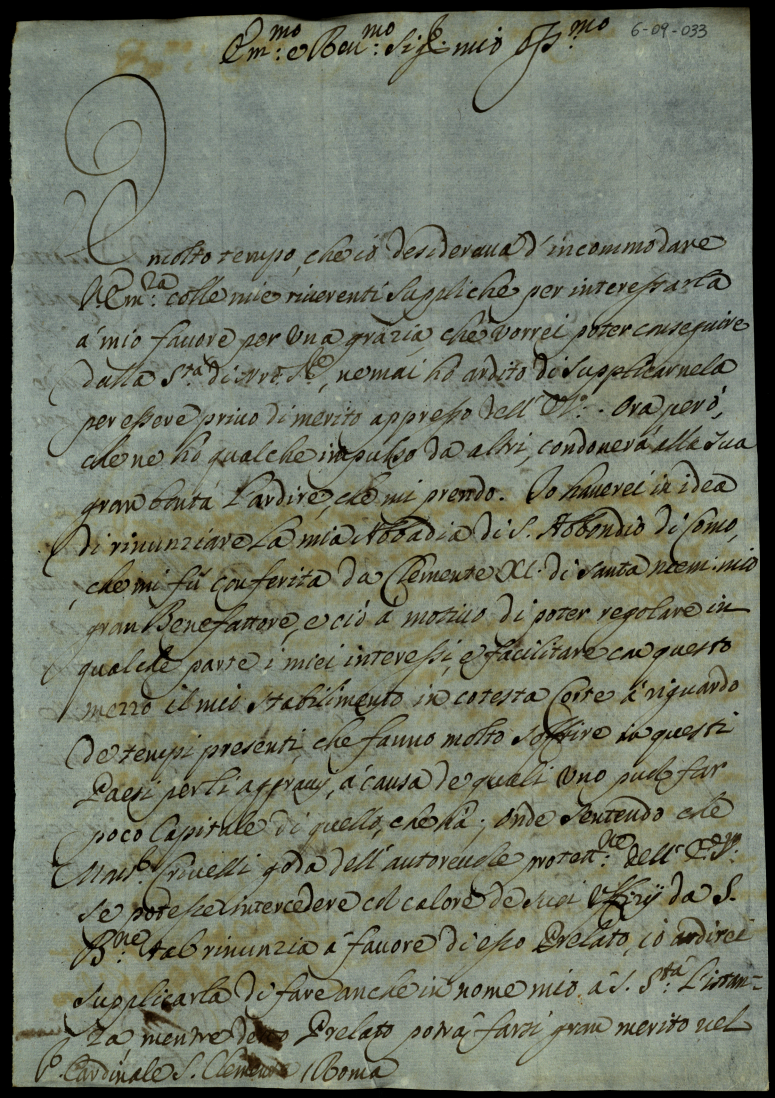 6-09-033
Em.mo e Reu.mo Sig.r mio Oss.mo
È molto tempo, che io desideraua d'incommodare
V. Em.za colle mie riuerenti suppliche per interessarla
à mio fauore per una grazia, che vorrei poter conseguire
dalla S.tà di Nro. Sre, ne mai hò ardito di supplicarnela
per essere priuo di merito appresso dell' E. V. Ora però,
che ne hò qualche impulso da altri, condonerà alla sua
gran bontà l'ardire, che mi prendo. Io hauerei in idea
di rinunziare la mia Abbadia di S. Abbondio di Como,
che mi fù conferita da Clemente XI. di santa mem: mio
gran Benefattore, e ciò à motiuo di poter regolare in
qualche parte i miei interessi, e facilitare con questo
mezzo il mio stabilimento in cotesta Corte à riguardo
de tempi presenti, che fanno molto soffrire in questi
Paesi per li aggrauj, à causa de quali uno può far
poco Capitale di quello, che hà; onde sentendo che
Mons.r Criuelli goda dell' autoreuole protett.ne dell' E. V.
se potesse intercedere col calore de suoi Uffizij da S.
B.ne tal rinunzia à fauore di esso Prelato, iò ardirei
supplicarla di fare anche in nome mio à S. S.tà l'istan=
za, mentre detto Prelato potrà farsi gran merito nel
S. Cardinale S. Clemente / Roma